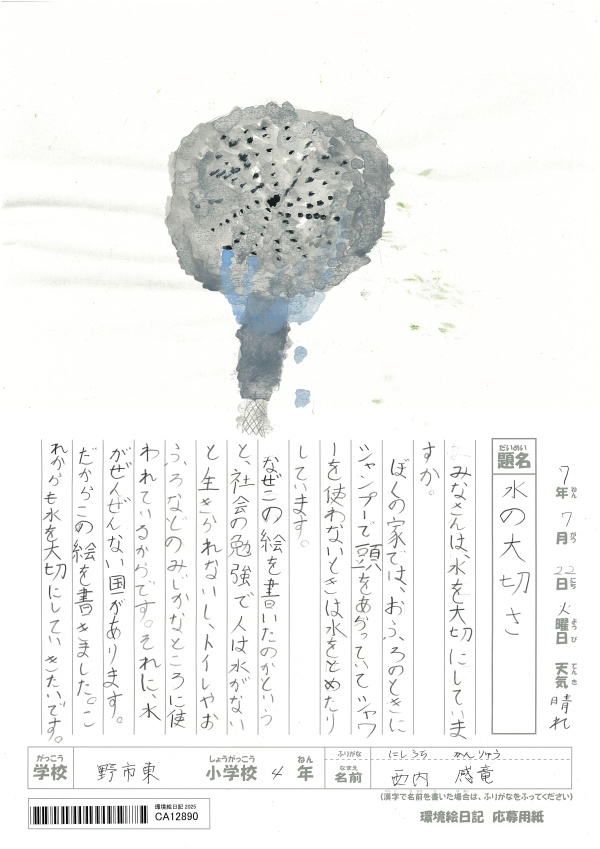 7年ねん 7月がつ 22日にち 火曜日ようび 天気てんき 晴れ
題名だいめい 水の大切さ
みなさんは、水を大切にしていま
すか。
ぼくの家では、おふろのときに
シャンプーで頭をあらっていてシャワ
ーを使わないときは水をとめたり
しています。
なぜこの絵を書いたのかという
と、社会の勉強で人は水がない
と生きられないし、トイレやお
ふろなどのみじかなところに使
われているからです。それに、水
がぜんぜんない国があります。
だからこの絵を書きました。こ
れからも水を大切にしていきたいです。
がっこう 学校 野市東 しょうがっこう 小学校 4 ねん 年
ふりがな にしうち かんりゅう
なまえ 名前 西内 感竜
(漢字で名前を書いた場合は、ふりがなをふってください)
環境絵日記 応募用紙
環境絵日記 2025
CA12890